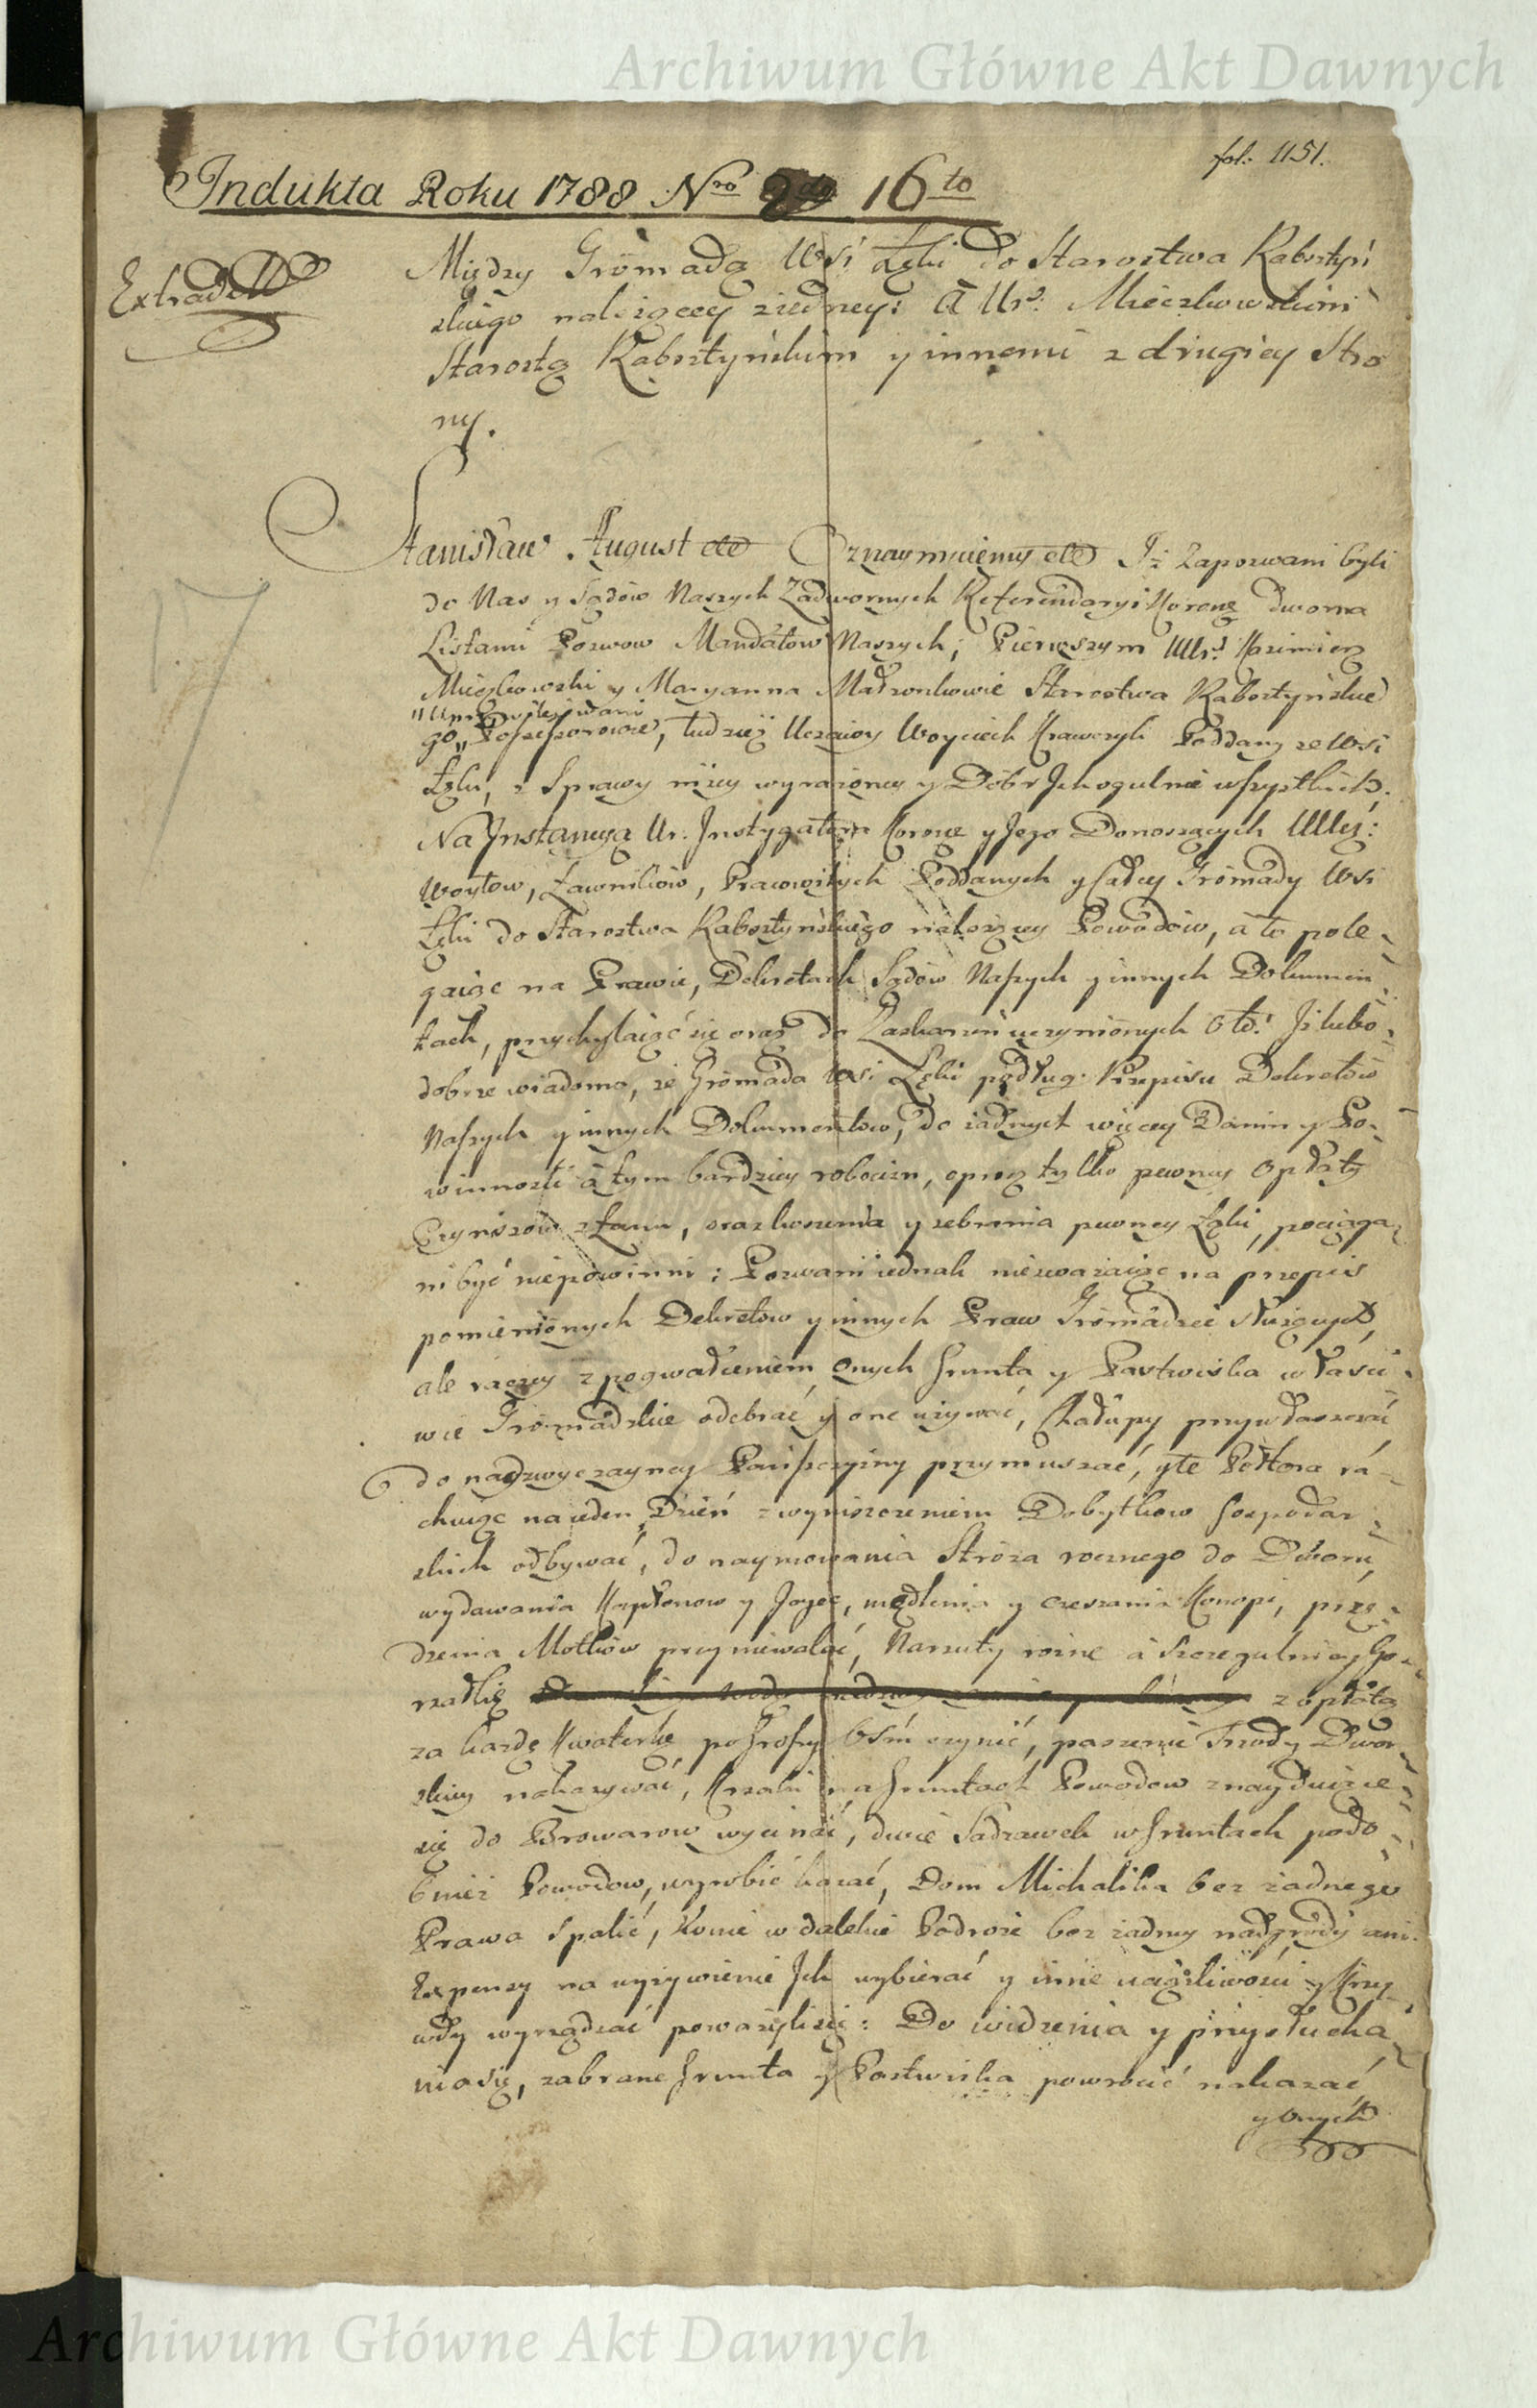 Archiwum Główne Akt Dawnych
fol: 1151.
Indukta Roku 1788 Nro 16to
Extradett
Między Gromadą Wsi Łęki do Starostwa Rabsztyń
skiego należącey z iedney: a Ur. Mieczkowskim
Starostą Rabsztyńskim y innemi z drugiey Stro
ny.
Stanisław August etc Oznaymuiemy etc Iż Zapozwani byli
do Nas y Sądów Naszych Zadwornych Referendaryi Koronę dwoma
Listami Pozwow Mandatow Naszych; Pierwszym UUr. Kazimierz
Mieczkowski y Maryanna Małżonkowie Starostwa Rabsztyńskie
"Uprzywileiowani
go" Possessorowie, tudzież Uczciwy Woyciech Krawczyk Poddany ze Wsi
Łęki, z Sprawy niżey wyrażoney y Dobr Ich ogulnie wszystkich;
Na Instancyą Ur. Instygatora Koronę y Jego Donoszących UUcz:
Woytow, Ławników, Pracowitych Poddanych y Całey Gromady Wsi
Łęki do Starostwa Rabsztyńskiego należącey Powodów, a to pole-
gaiąc na Prawie, Dekretach Sądów Naszych y innych Dokumen-
tach, przychylaiąc się oraz do Zaskarżeń uczynionych Otd: Iż lubo
dobrze wiadomo, że Gromada Wsi Łęki podług Przepisu Dekretów
Naszych y innych Dokumentow, do żadnych więcey Danin y Po-
winności a tym bardziey robocizn, oprocz tylko pewney Opłaty
Czynszów z Łanu, oraz koszenia y zebrania pewney Łąki, pociąga-
ni być niepowinni; Pozwani iednak niezważaiąc na przepis
pomienionych Dekretow y innych Praw Gromadzie służących,
ale raczey z pogwałceniem onych Grunta y Pastwiska właści-
wie Gromadzkie odebrać y one używać, Chałupy przywłaszczać
do nadzwyczayney Pańszczyzny przymuszać, y te Półtora ra-
chuiąc na ieden Dzień z wyniszczeniem Dobytkow Gospodar-
skich odbywać, do naymowania Stróża rocznego do Dworu,
wydawania Kapłonow y Jayec, międlenia y czesania Konopi, przę-
dzenia Motków przyniewalać, Narzuty rożne a szczegulniey Go-
rzałkę z opłatą
za każdę Kwaterkę po Groszy Ośm czynić, paszenie Trzody Dwor-
skiey nakazywać, Krzaki na Gruntach Powodow znayduiące
się do Browarow wycinać, dwie Sadzawek w Gruntach podo-
bnież Powodow, wyrobić kazać, Dom Michalika bez żadnego
Prawa spalić, Konie w dalekie Podroże bez żadney nadgrody ani
Expensy na wyżywienie Ich wybierać y inne uciążliwości y Krzy-
wdy wyrządzać poważyli się: Do widzenia y przysłucha
nia się, zabrane Grunta y Pastwiska powrócić nakazać,
y onych
Archiwum Główne Akt Dawnych